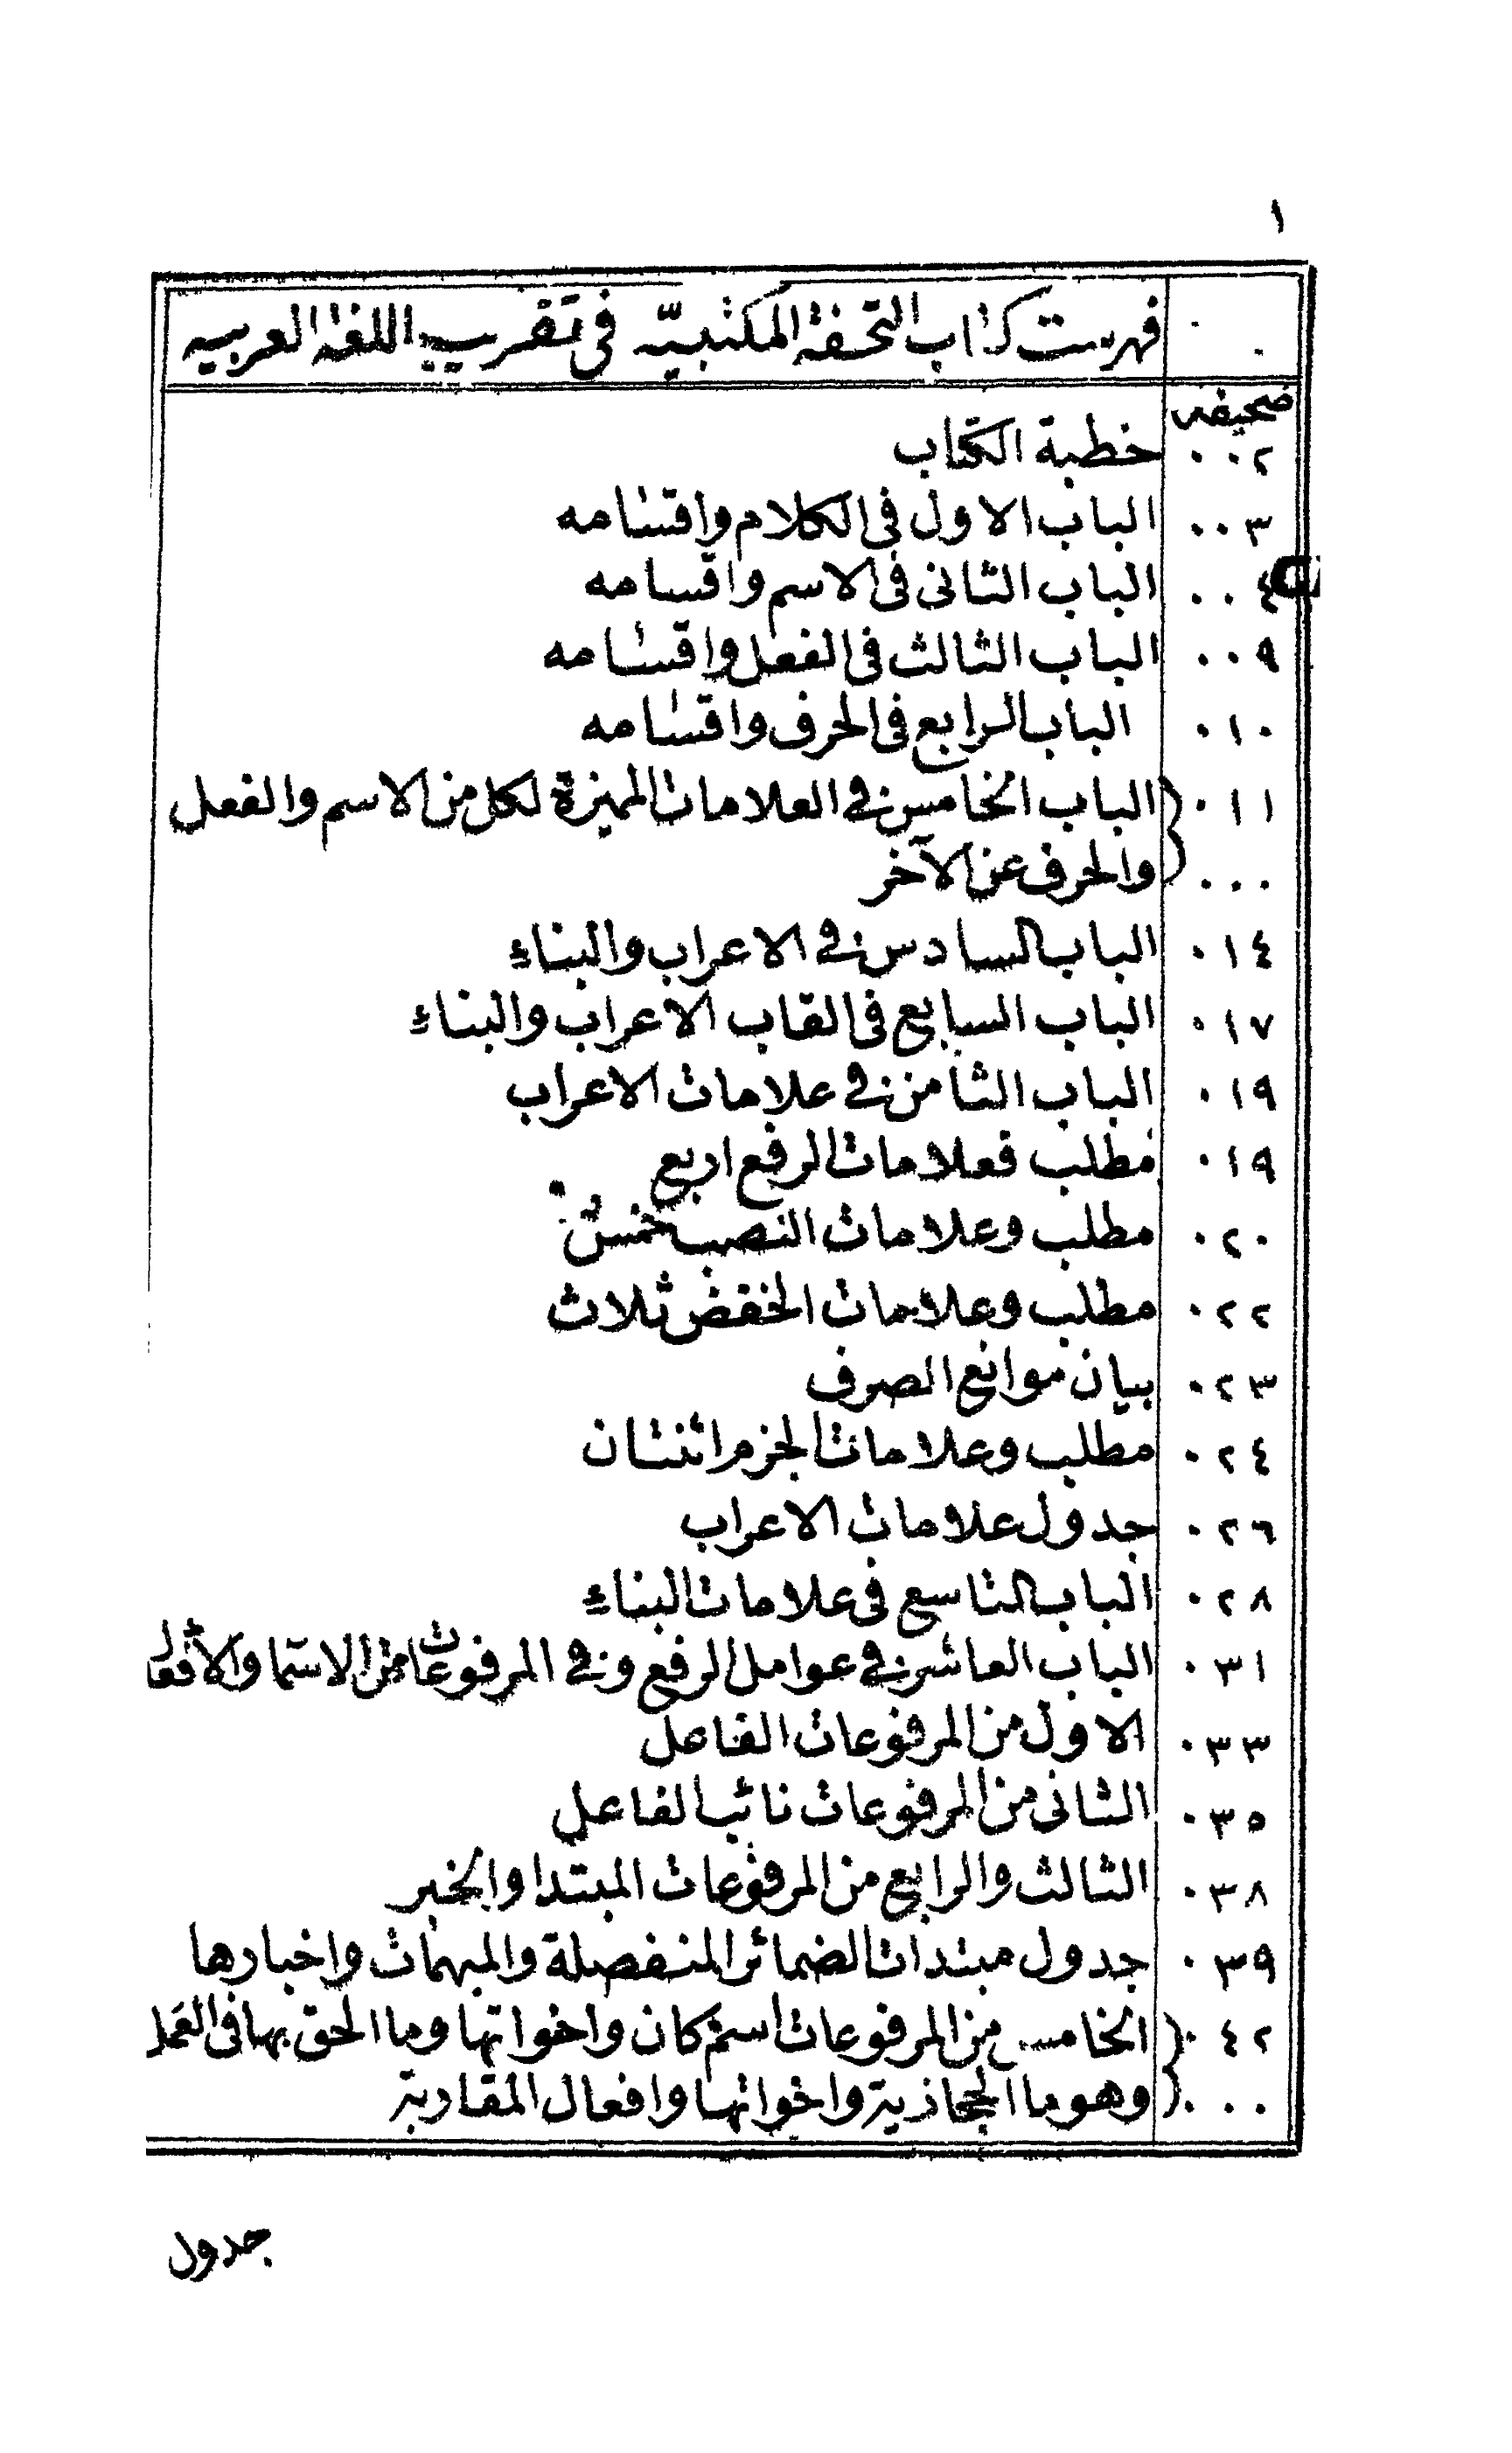 ١
فهرست كتاب التحفة المكتبيّه فى تقريب اللغة العربيه
صحيفه
٠٠٢ خطبة الكتاب
٠٠٣ الباب الاول فى الكلام واقسامه
٠٠٤ الباب الثانى فى الاسم واقسامه
٠٠٩ الباب الثالث فى الفعل واقسامه
٠١٠ الباب الرابع فى الحرف واقسامه
٠١١ الباب الخامس فى العلامات المميزة لكل من الاسم والفعل
٠٠٠ والحرف عن الآخر
٠١٤ الباب السادس فى الاعراب والبناء
٠١٧ الباب السابع فى القاب الاعراب والبناء
٠١٩ الباب الثامن فى علامات الاعراب
٠١٩ مطلب فعلامات الرفع اربع
٠٢٠ مطلب وعلامات النصب خمس
٠٢٢ مطلب وعلامات الخفض ثلاث
٠٢٣ بيان موانع الصرف
٠٢٤ مطلب وعلامات الجزم اثنتان
٠٢٦ جدول علامات الاعراب
٠٢٨ الباب التاسع فى علامات البناء
٠٣١ الباب العاشر فى عوامل الرفع وفى المرفوعات من الاسما والافعال
٠٣٣ الاول من المرفوعات الفاعل
٠٣٥ الثانى من المرفوعات نائب الفاعل
٠٣٨ الثالث والرابع من المرفوعات المبتدا والخبر
٠٣٩ جدول مبتدات الضمائر المنفصلة والمبهمات واخبارها
٠٤٢ الخامس من المرفوعات اسم كان واخواتها وما الحق بها فى العمل
٠٠٠ وهو ما الحجازية واخواتها وافعال المقاربة
جدول